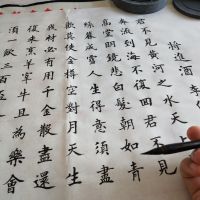 將進酒 李
君不見黃河之水天上
奔流到海不復回君不見
高堂明鏡悲白髮朝如青
絲暮成雪人生得意須盡
歡莫使金樽空對月天生
我材必有用千金散盡還
復來烹羊宰牛且為樂會
須一飲三百